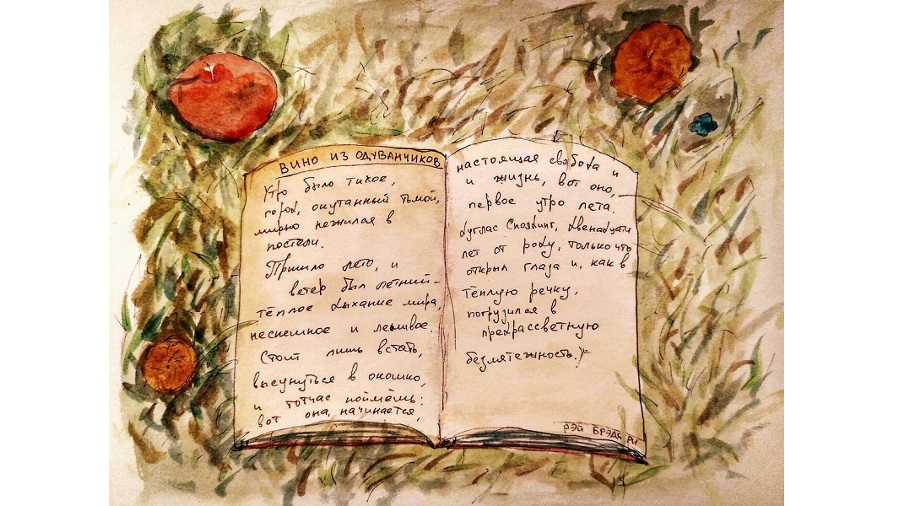 ВИНО ИЗ ОДУВАНЧИКОВ
Утро было тихое,
город, окутанный тьмой,
мирно нежился в
постели.
Пришло лето, и
ветер был летний -
тёплое дыхание мира,
неспешное и ленивое.
Стоит лишь встать,
высунуться в окошко,
и тотчас поймёшь:
вот она, начинается
настоящая свобода и
и жизнь, вот оно,
первое утро лета.
Дуглас Сполдинг, двенадцати
лет от роду, только что
открыл глаза и, как в
тёплую речку,
погрузился в
предрассветную
безмятежность.
РЭЙ БРЭДБЕРИ